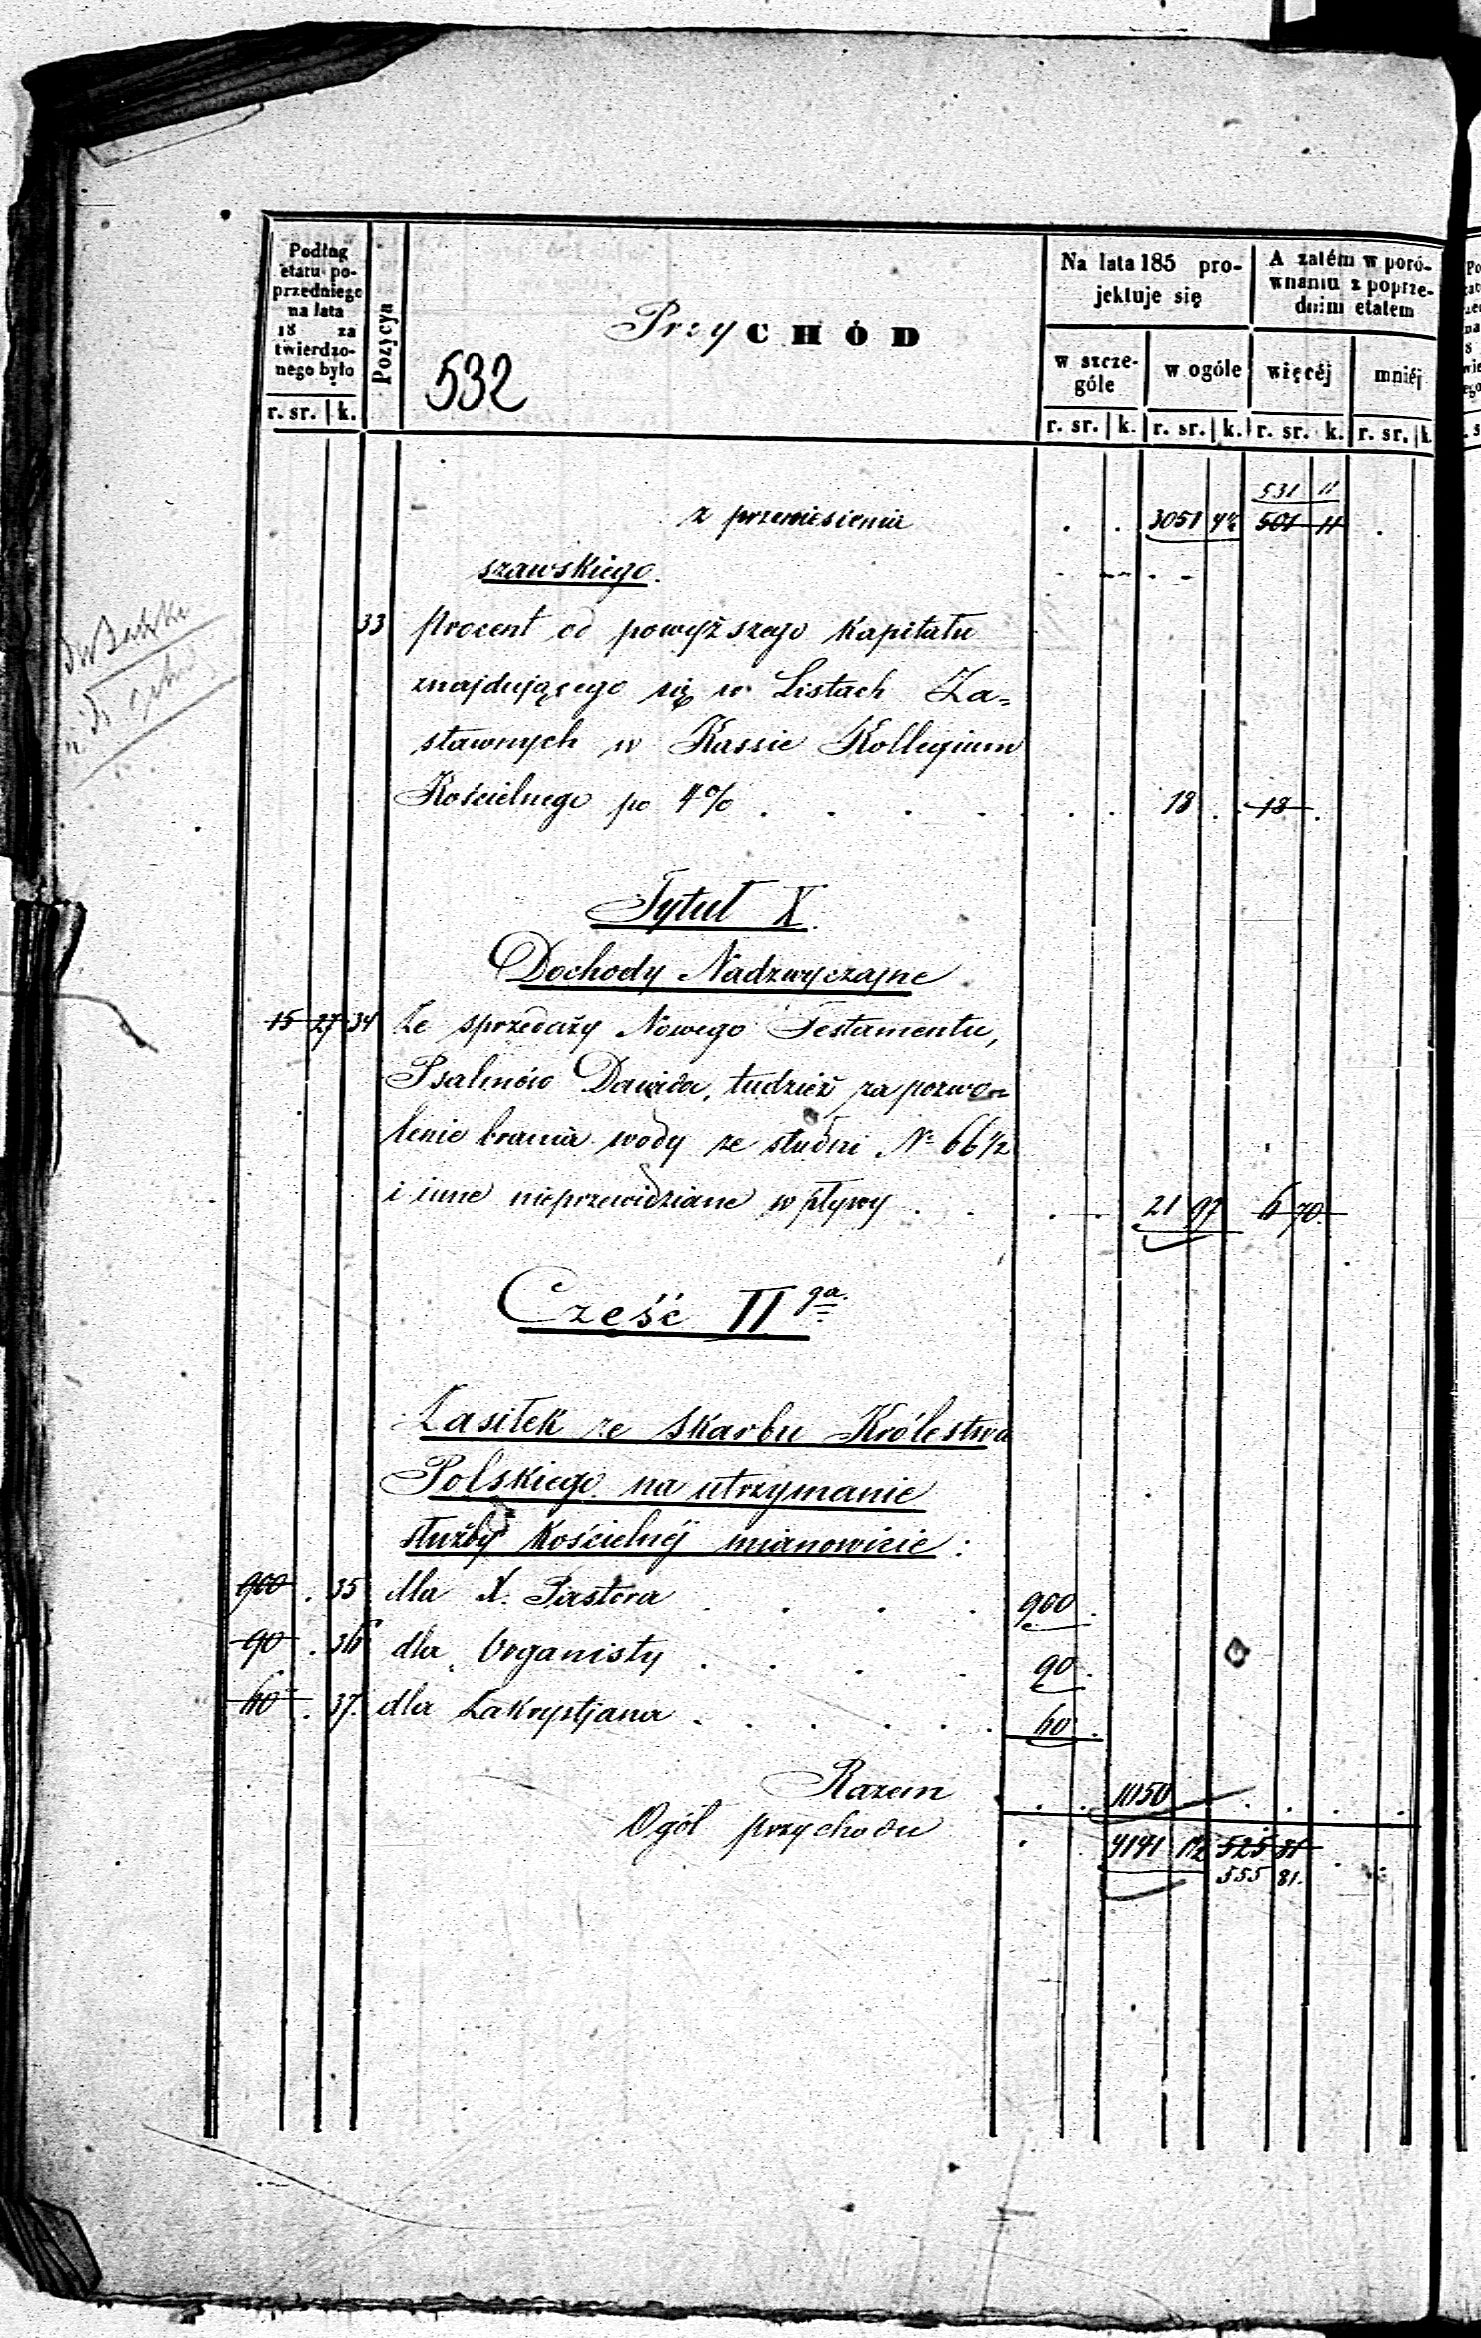 Podług etatu poprzedniego na lata 18 za twierdzonego było
r. sr. k.
Pozycya
532
PrzyCHÓD
Na lata 185 projektuje się
w szczególe
w ogóle
r. sr. k. r. sr. k.
A zatém w porównaniu z poprzednim etatem
więcéj
mniéj
r. sr. k. r. sr. k.
531 11
z przeniesienia 3051 501 11
szawskiego.
33 procent od powyższego Kapitału
znajdującego się w Listach Za=
stawnych w Kassie Kollegium
Kościelnego po 4% . . . . . . 18 . 18 .
Tytuł X.
Dochody Nadzwyczajne
15 27 34 Ze sprzedaży Nowego Testamentu,
Psalmów Dawida, tudzież za pozwo=
lenie brania wody ze studni No 66½
i inne nieprzewidziane wpływy . . . . 21 97 6 70.
Część II ga.
Zasiłek ze Skarbu Królestwa
Polskiego na utrzymanie
służby Kościelnéj mianowicie:
900 . 35 dla X. Pastora . . . . 900 .
90 . 36 dla Organisty . . . . 90 .
60 . 37. dla Zakrystjana . . . . . . 60 .
Razem . . 1050 . . . .
Ogół przychodu . . 4141 1½ 525 81
555 81.